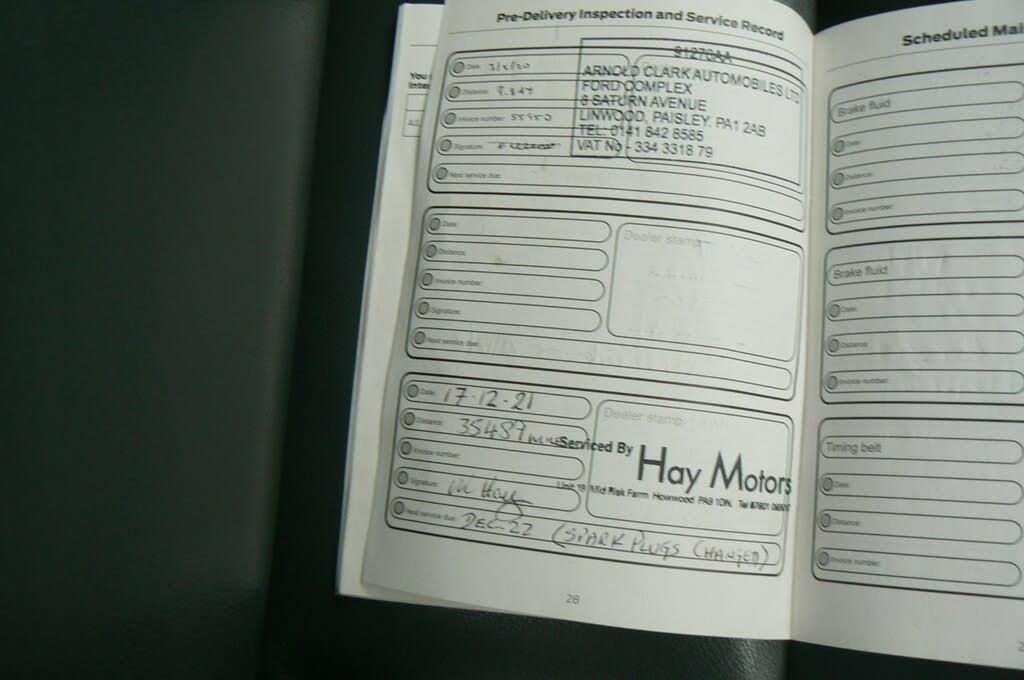 Pre-Delivery Inspection and Service Record
91270AA
ARNOLD CLARK AUTOMOBILES LTD
FORD COMPLEX
8 SATURN AVENUE
LINWOOD, PAISLEY. PA1 2AB
TEL: 0141 842 8585
VAT No - 334 3318 79
Date:
Distance:
Invoice number: 55950
Signature:
Next service due:
Date:
Distance:
Invoice number:
Signature:
Next service due:
Dealer stamp
Date: 17-12-21
Distance: 35489 miles
Invoice number:
Signature: M Hay
Next service due: DEC-22 (SPARK PLUGS CHANGED)
Dealer stamp
Serviced By Hay Motors
Mid Risk Farm Howwood PA9 1DN.
28
You
Scheduled Mai
Brake fluid
Date:
Distance:
Invoice number:
Brake fluid
Date:
Distance:
Invoice number:
Timing belt
Date:
Distance:
Invoice number: